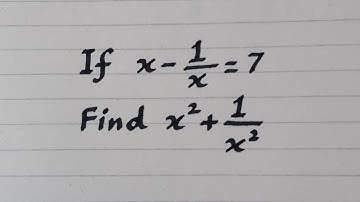 If x - 1/x = 7
Find x² + 1/x²